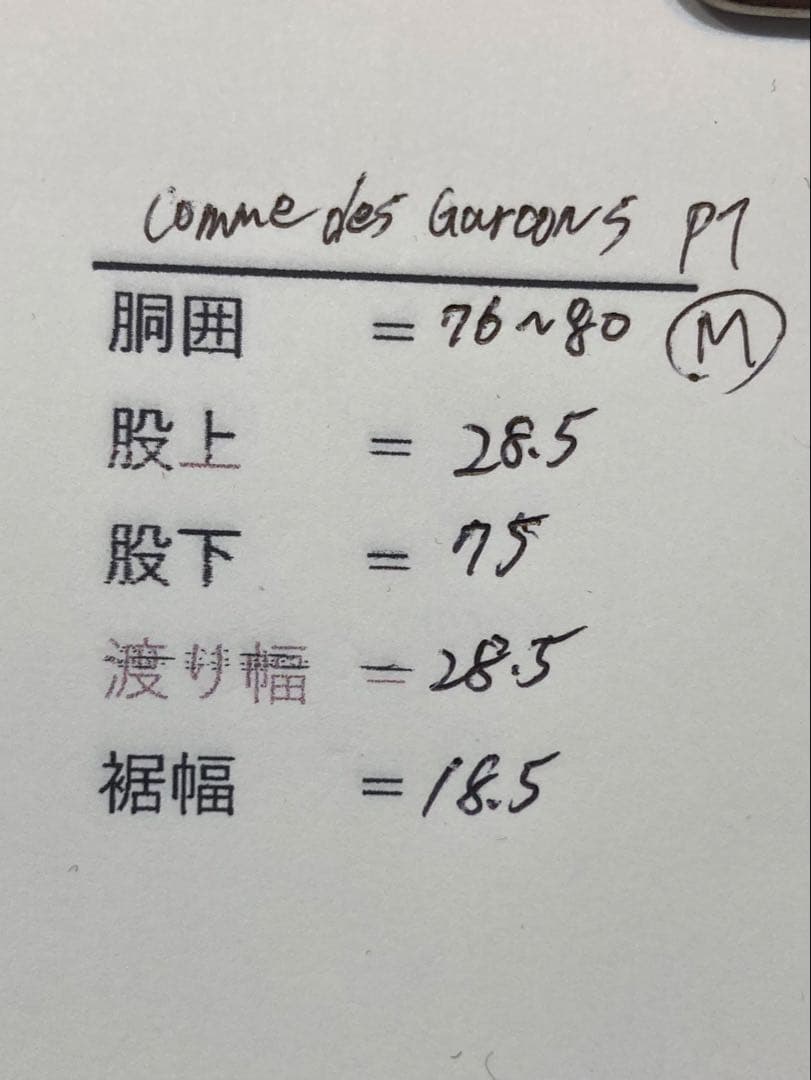 Comme des Garcons P1
胴囲 = 76~80 M
股上 = 28.5
股下 = 75
渡り幅 = 28.5
裾幅 = 18.5